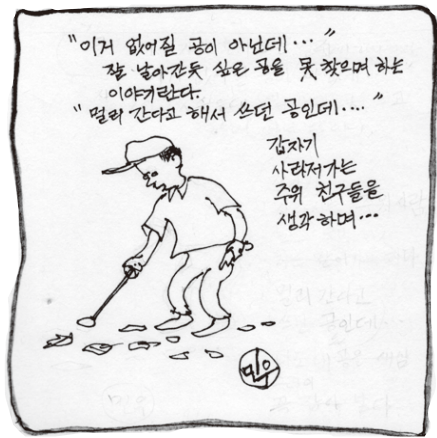 "이거 없어질 공이 아닌데···"
잘 날아간듯 싶은 공을 못 찾으며 하는
이야기란다.
"멀리 간다고 해서 쓰던 공인데····"
갑자기
사라져가는
주위 친구들을
생각하며···
민우